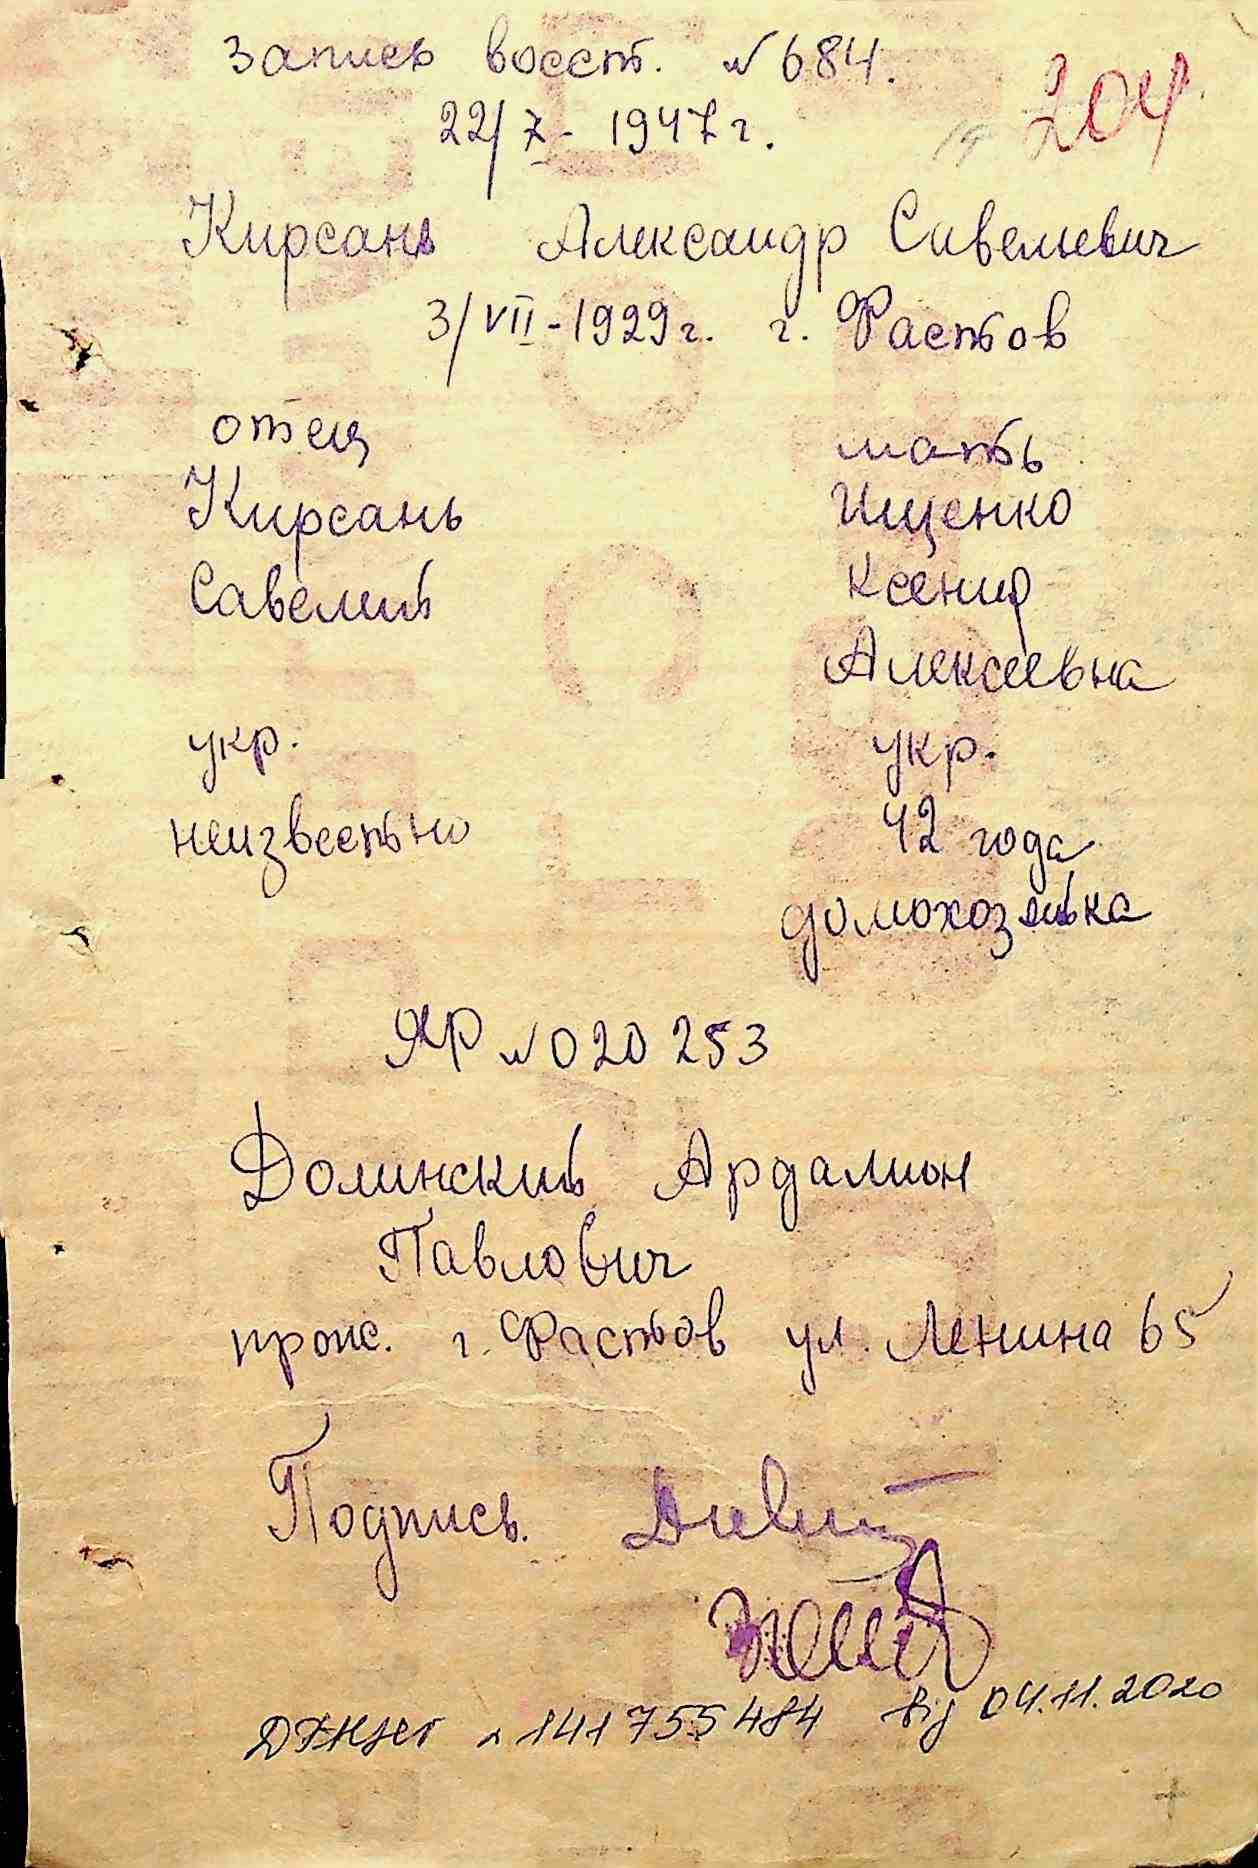 Запись восст. № 684.
22/7 - 1947 г.
204
Кирсань Александр Савельевич
3/VII - 1929 г. г. Фастов
отец мать
Кирсань Ищенко
Савелий Ксения
Алексеевна
укр. укр.
неизвестно 42 года
домохозяйка
ЯР № 020253
Долинский Ардалион
Павлович
прож. г. Фастов ул. Ленина 65
Подпись.
№ 141755484 від 04.11.2020